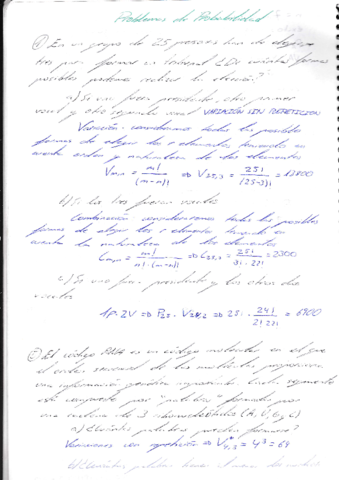 Problemas de Probabilidad
① En un grupo de 25 personas han de elegirse
tres para formar un tribunal ¿De cuántas formas
posibles podemos realizar la elección?
a) Si uno fuera presidente, otro primer
vocal y otro segundo vocal VARIACIÓN SIN REPETICIÓN
Variación: consideramos todas las posibles
formas de elegir los r elementos teniendo en
cuenta orden y naturaleza de los elementos
V m,n = m! / (m-n)! ⇒ V 25,3 = 25! / (25-3)! = 13800
b) Si los tres fueran vocales
Combinación consideraremos todas las posibles
formas de elegir los r elementos teniendo en
cuenta la naturaleza de los elementos
C m,n = m! / n!·(m-n)! ⇒ C 25,3 = 25! / 3!·22! = 2300
c) Si uno fuera presidente y los otros dos
vocales
1P·2V ⇒ P 25 · V 24,2 ⇒ 25 · 24! / 2!·22! = 6900
② El código RNA es un código molecular en el que
el orden de las moléculas proporciona
una información genética importante. Cada segmento
está compuesto por "palabras" formadas por
una cadena de 3 (A, U, G, C)
a) ¿Cuántas palabras pueden formarse?
Variaciones con repetición ⇒ V* 4,3 = 4³ = 64